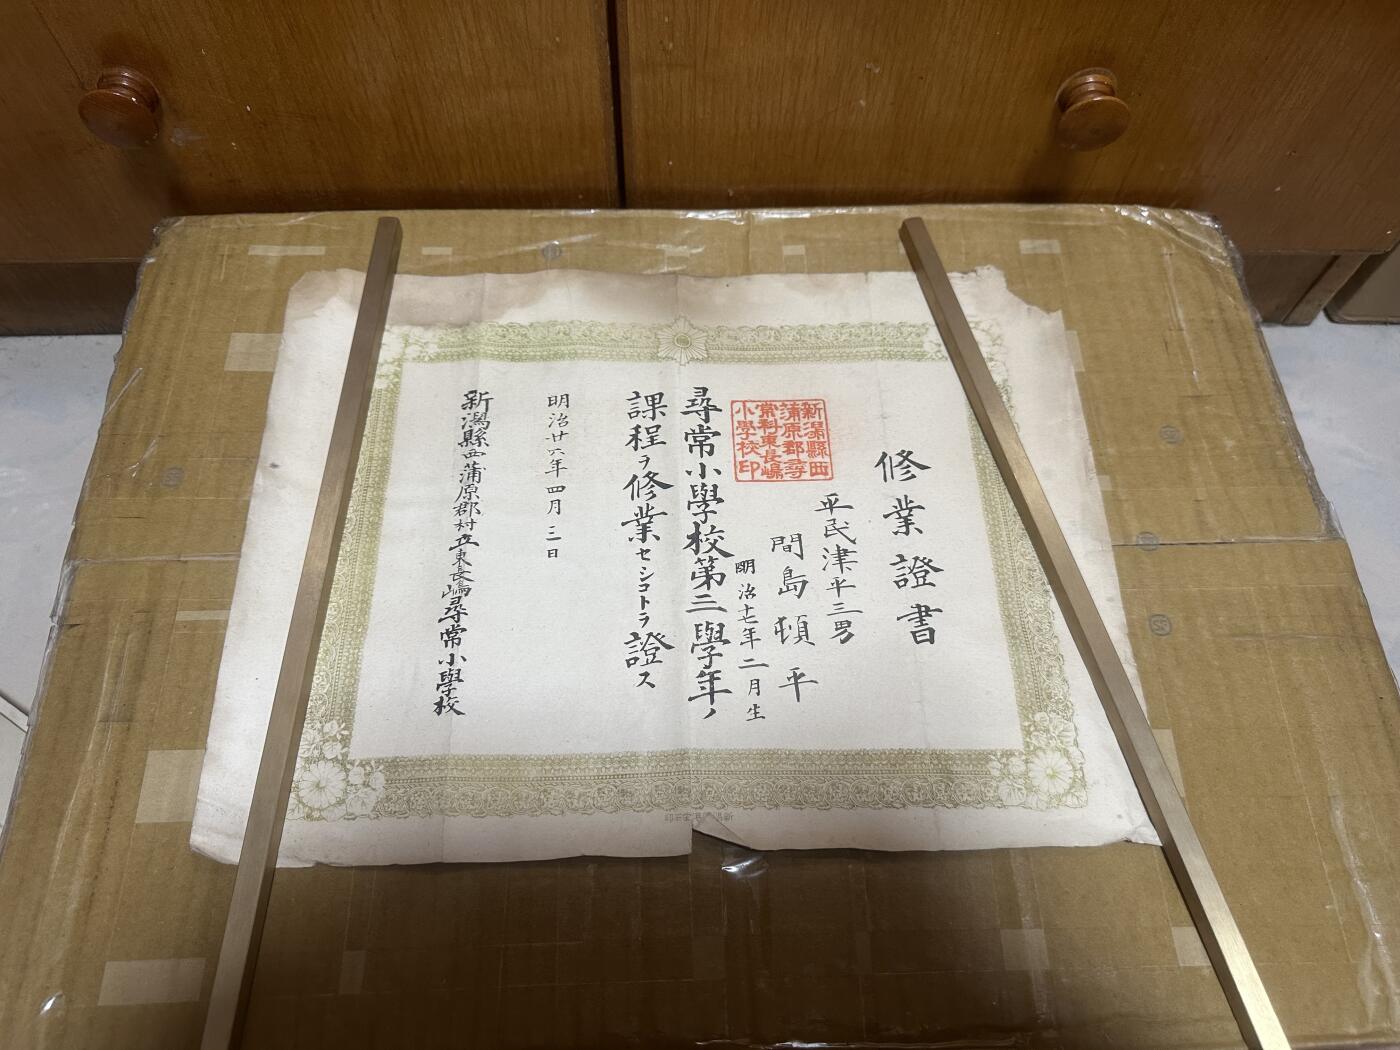 修業證書
平民津平三男
間島頓平
明治十七年二月生
新潟縣西
蒲原郡尋
常科東長嶋
小學校印
尋常小學校第三學年ノ
課程ヲ修業セシコトヲ證ス
明治廿六年四月三日
新潟縣西蒲原郡村立東長嶋尋常小學校